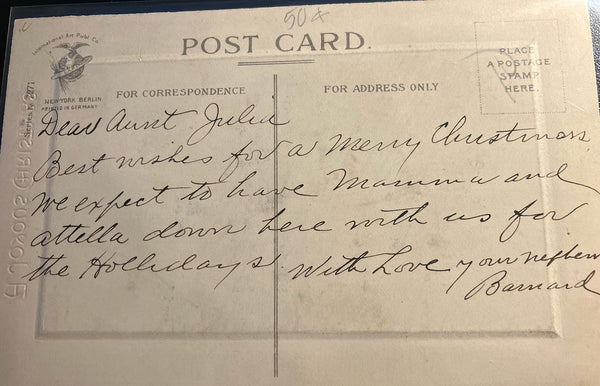 50¢
International Art Publ. Co.
POST CARD.
PLACE
A POSTAGE
STAMP
HERE.
NEW YORK BERLIN
PRINTED IN GERMANY
Series No. 2271
FOR CORRESPONDENCE
FOR ADDRESS ONLY
Dear Aunt Julia
Best wishes for a Merry Christmas
We expect to have Mamma and
attella down here with us for
the Hollidays With Love your nephew
Barnard